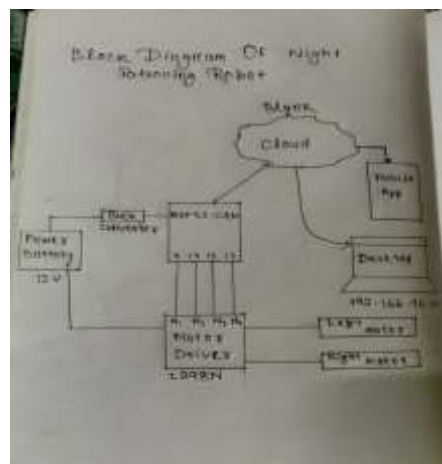 Block Diagram Of Night
Patrolling Robot
Blynk
Cloud
Mobile
App
Buck
Converter
ESP32-CAM
Power
Battery
12V
Desktop
IN1 IN2 IN3 IN4
Motor
Driver
L298N
Left motor
Right motor